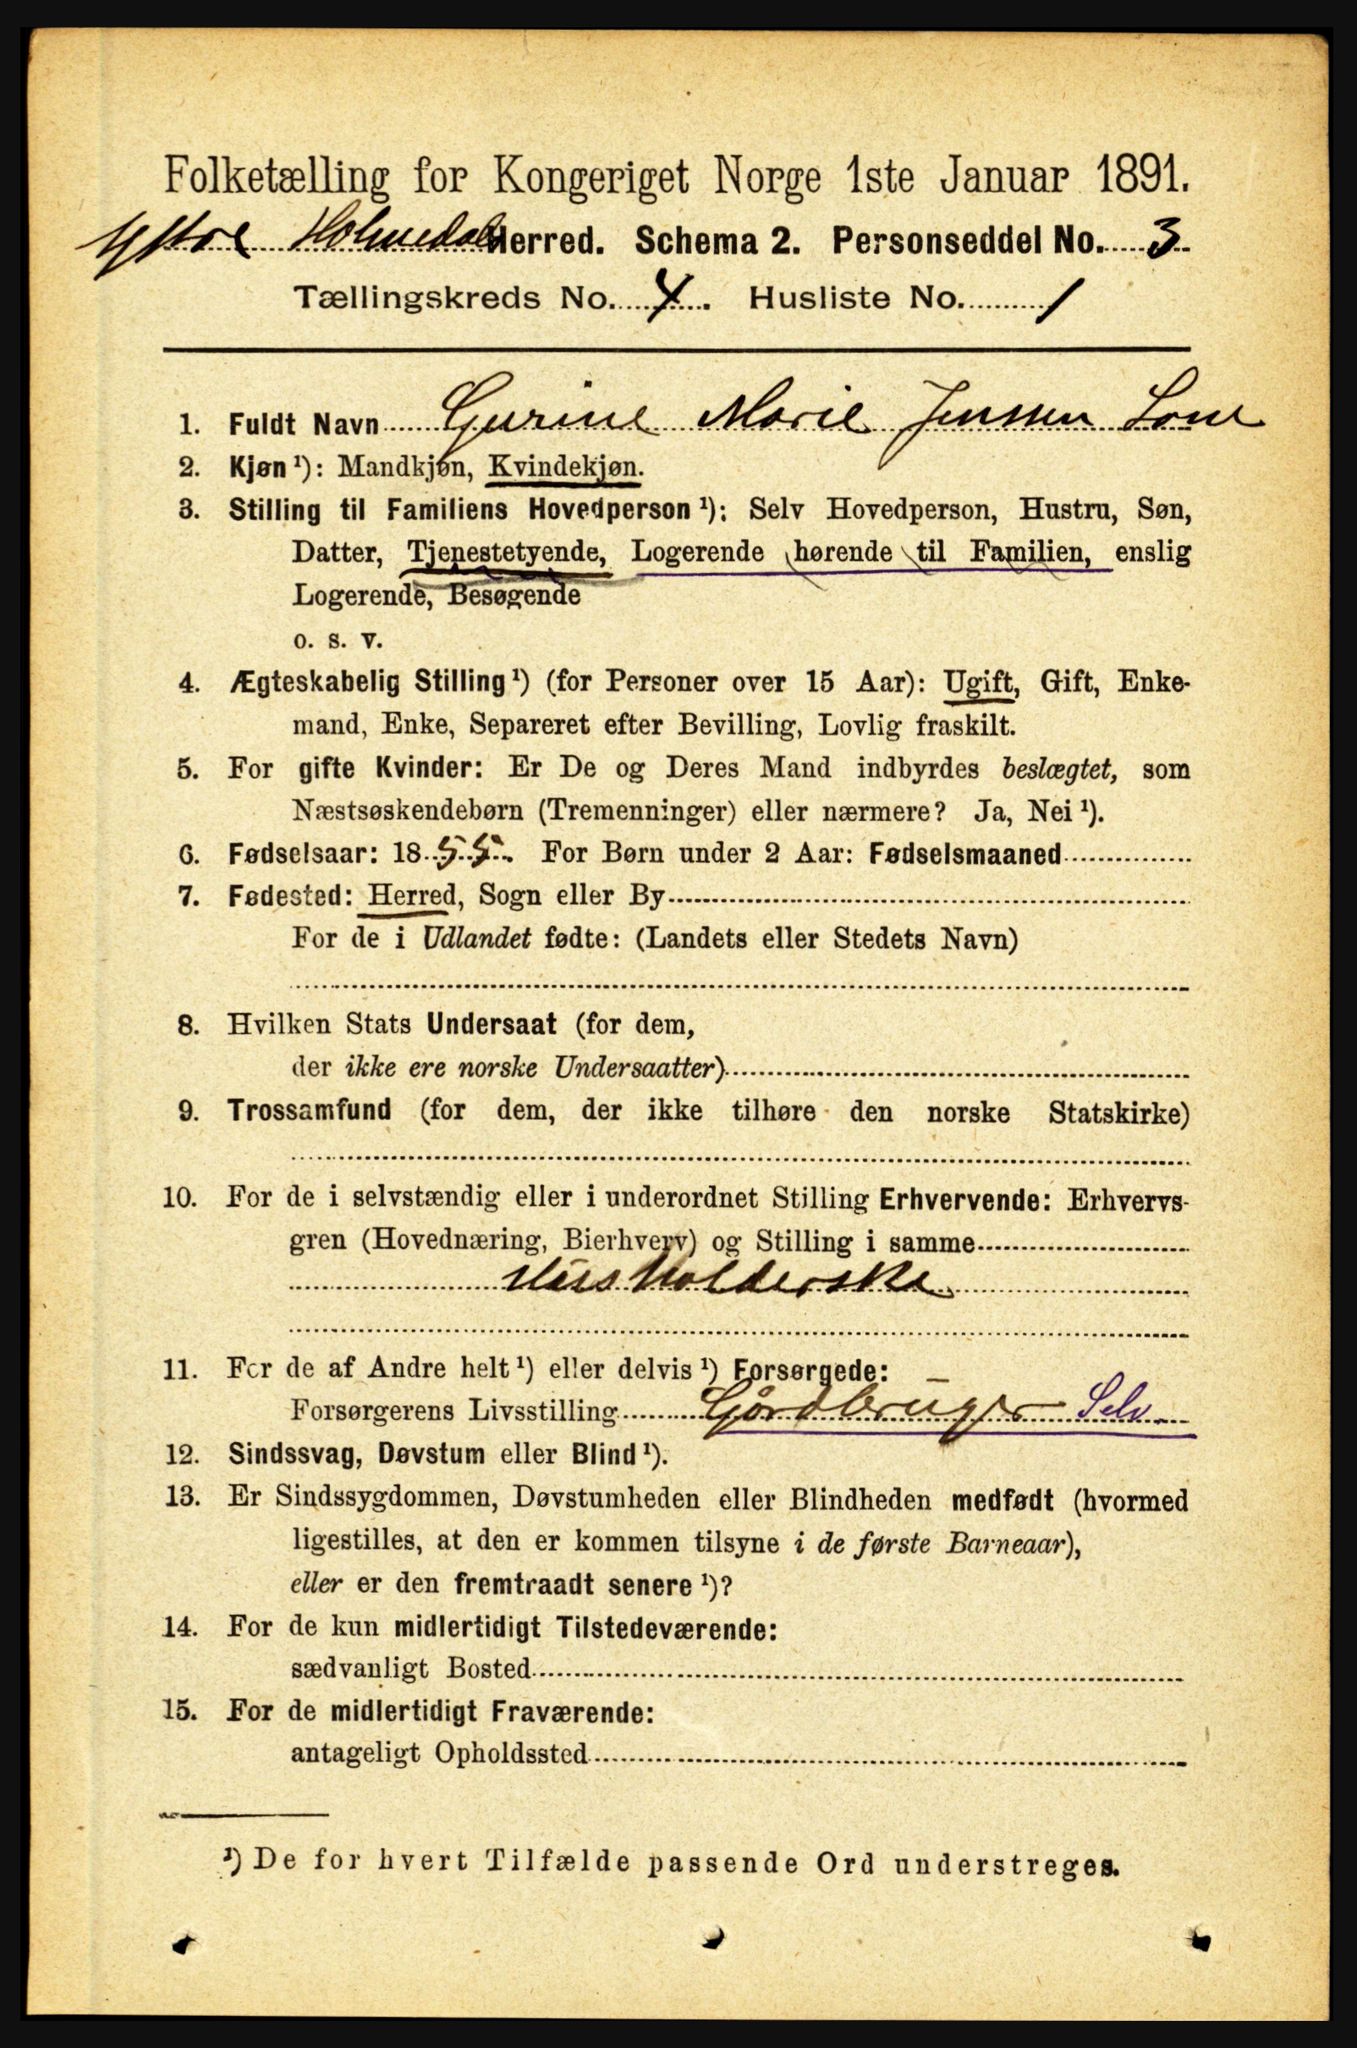 Folketælling for Kongeriget Norge 1ste Januar 1891.
Ytre Holmedals Herred. Schema 2. Personseddel No. 3
Tællingskreds No. 4. Husliste No. 1
1. Fuldt Navn Gurine Marie Jenssen Lone
2. Kjøn ¹): Mandkjøn, Kvindekjøn.
3. Stilling til Familiens Hovedperson ¹): Selv Hovedperson, Hustru, Søn,
Datter, Tjenestetyende, Logerende hørende til Familien, enslig
Logerende, Besøgende
o. s. v.
4. Ægteskabelig Stilling ¹) (for Personer over 15 Aar): Ugift, Gift, Enke-
mand, Enke, Separeret efter Bevilling, Lovlig fraskilt.
5. For gifte Kvinder: Er De og Deres Mand indbyrdes beslægtet, som
Næstsøskendebørn (Tremenninger) eller nærmere? Ja, Nei ¹).
6. Fødselsaar: 1855. For Børn under 2 Aar: Fødselsmaaned
7. Fødested: Herred, Sogn eller By
For de i Udlandet fødte: (Landets eller Stedets Navn)
8. Hvilken Stats Undersaat (for dem,
der ikke ere norske Undersaatter)
9. Trossamfund (for dem, der ikke tilhøre den norske Statskirke)
10. For de i selvstændig eller i underordnet Stilling Erhvervende: Erhvervs-
gren (Hovednæring, Bierhverv) og Stilling i samme
Husholderske
11. For de af Andre helt ¹) eller delvis ¹) Forsørgede:
Forsørgerens Livsstilling Gårdbruger Selv
12. Sindssvag, Døvstum eller Blind ¹).
13. Er Sindssygdommen, Døvstumheden eller Blindheden medfødt (hvormed
ligestilles, at den er kommen tilsyne i de første Barneaar),
eller er den fremtraadt senere ¹)?
14. For de kun midlertidigt Tilstedeværende:
sædvanligt Bosted
15. For de midlertidigt Fraværende:
antageligt Opholdssted
¹) De for hvert Tilfælde passende Ord understreges.